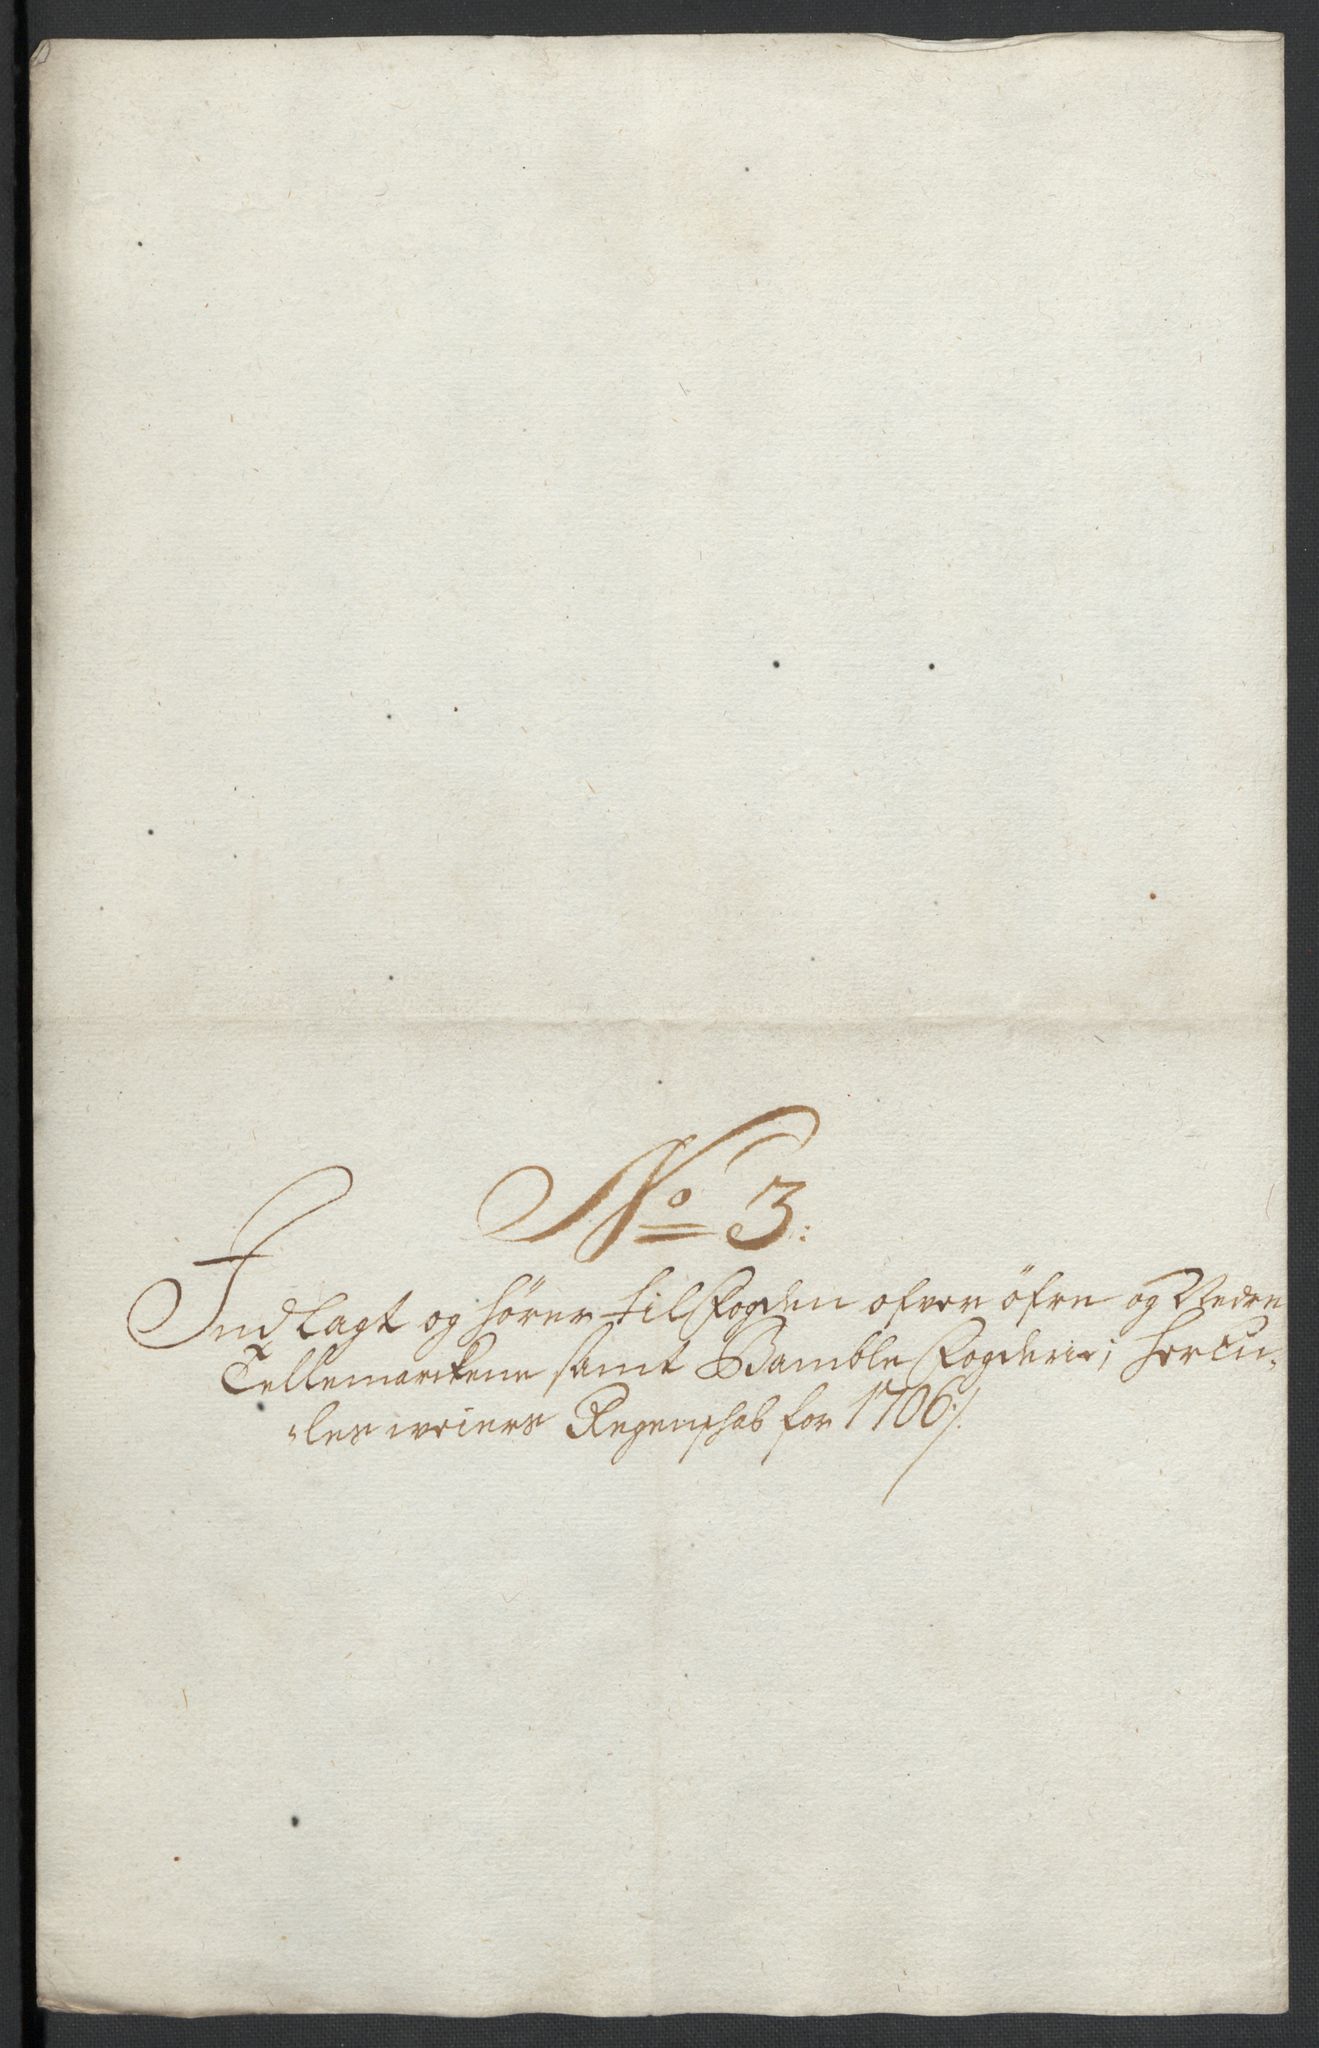 No 3:
Indlagt og hører til Fogden ofver öfre og Nedre
Tellemarckene samt Bamble Fogderie, Hercu-
les weiers Regenschab for 1706 /.